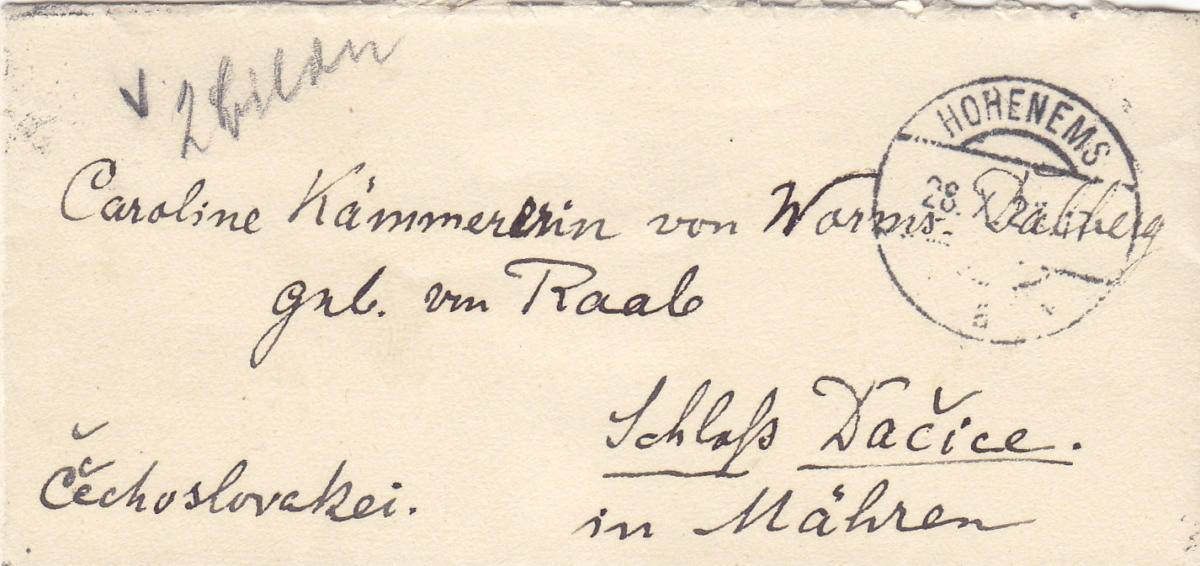 HOHENEMS
28
Caroline Kämmererin von Worms Dalberg
geb. von Raab
Schloß Dačice.
Čechoslovakei.
in Mähren